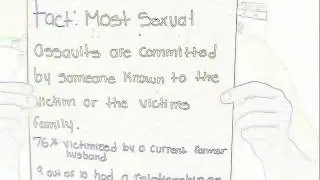 Fact: Most Sexual
Assaults are committed
by someone known to the
victim or the victims
family.
76% victimised by a current former
husband
9 out of 10 had a relationship